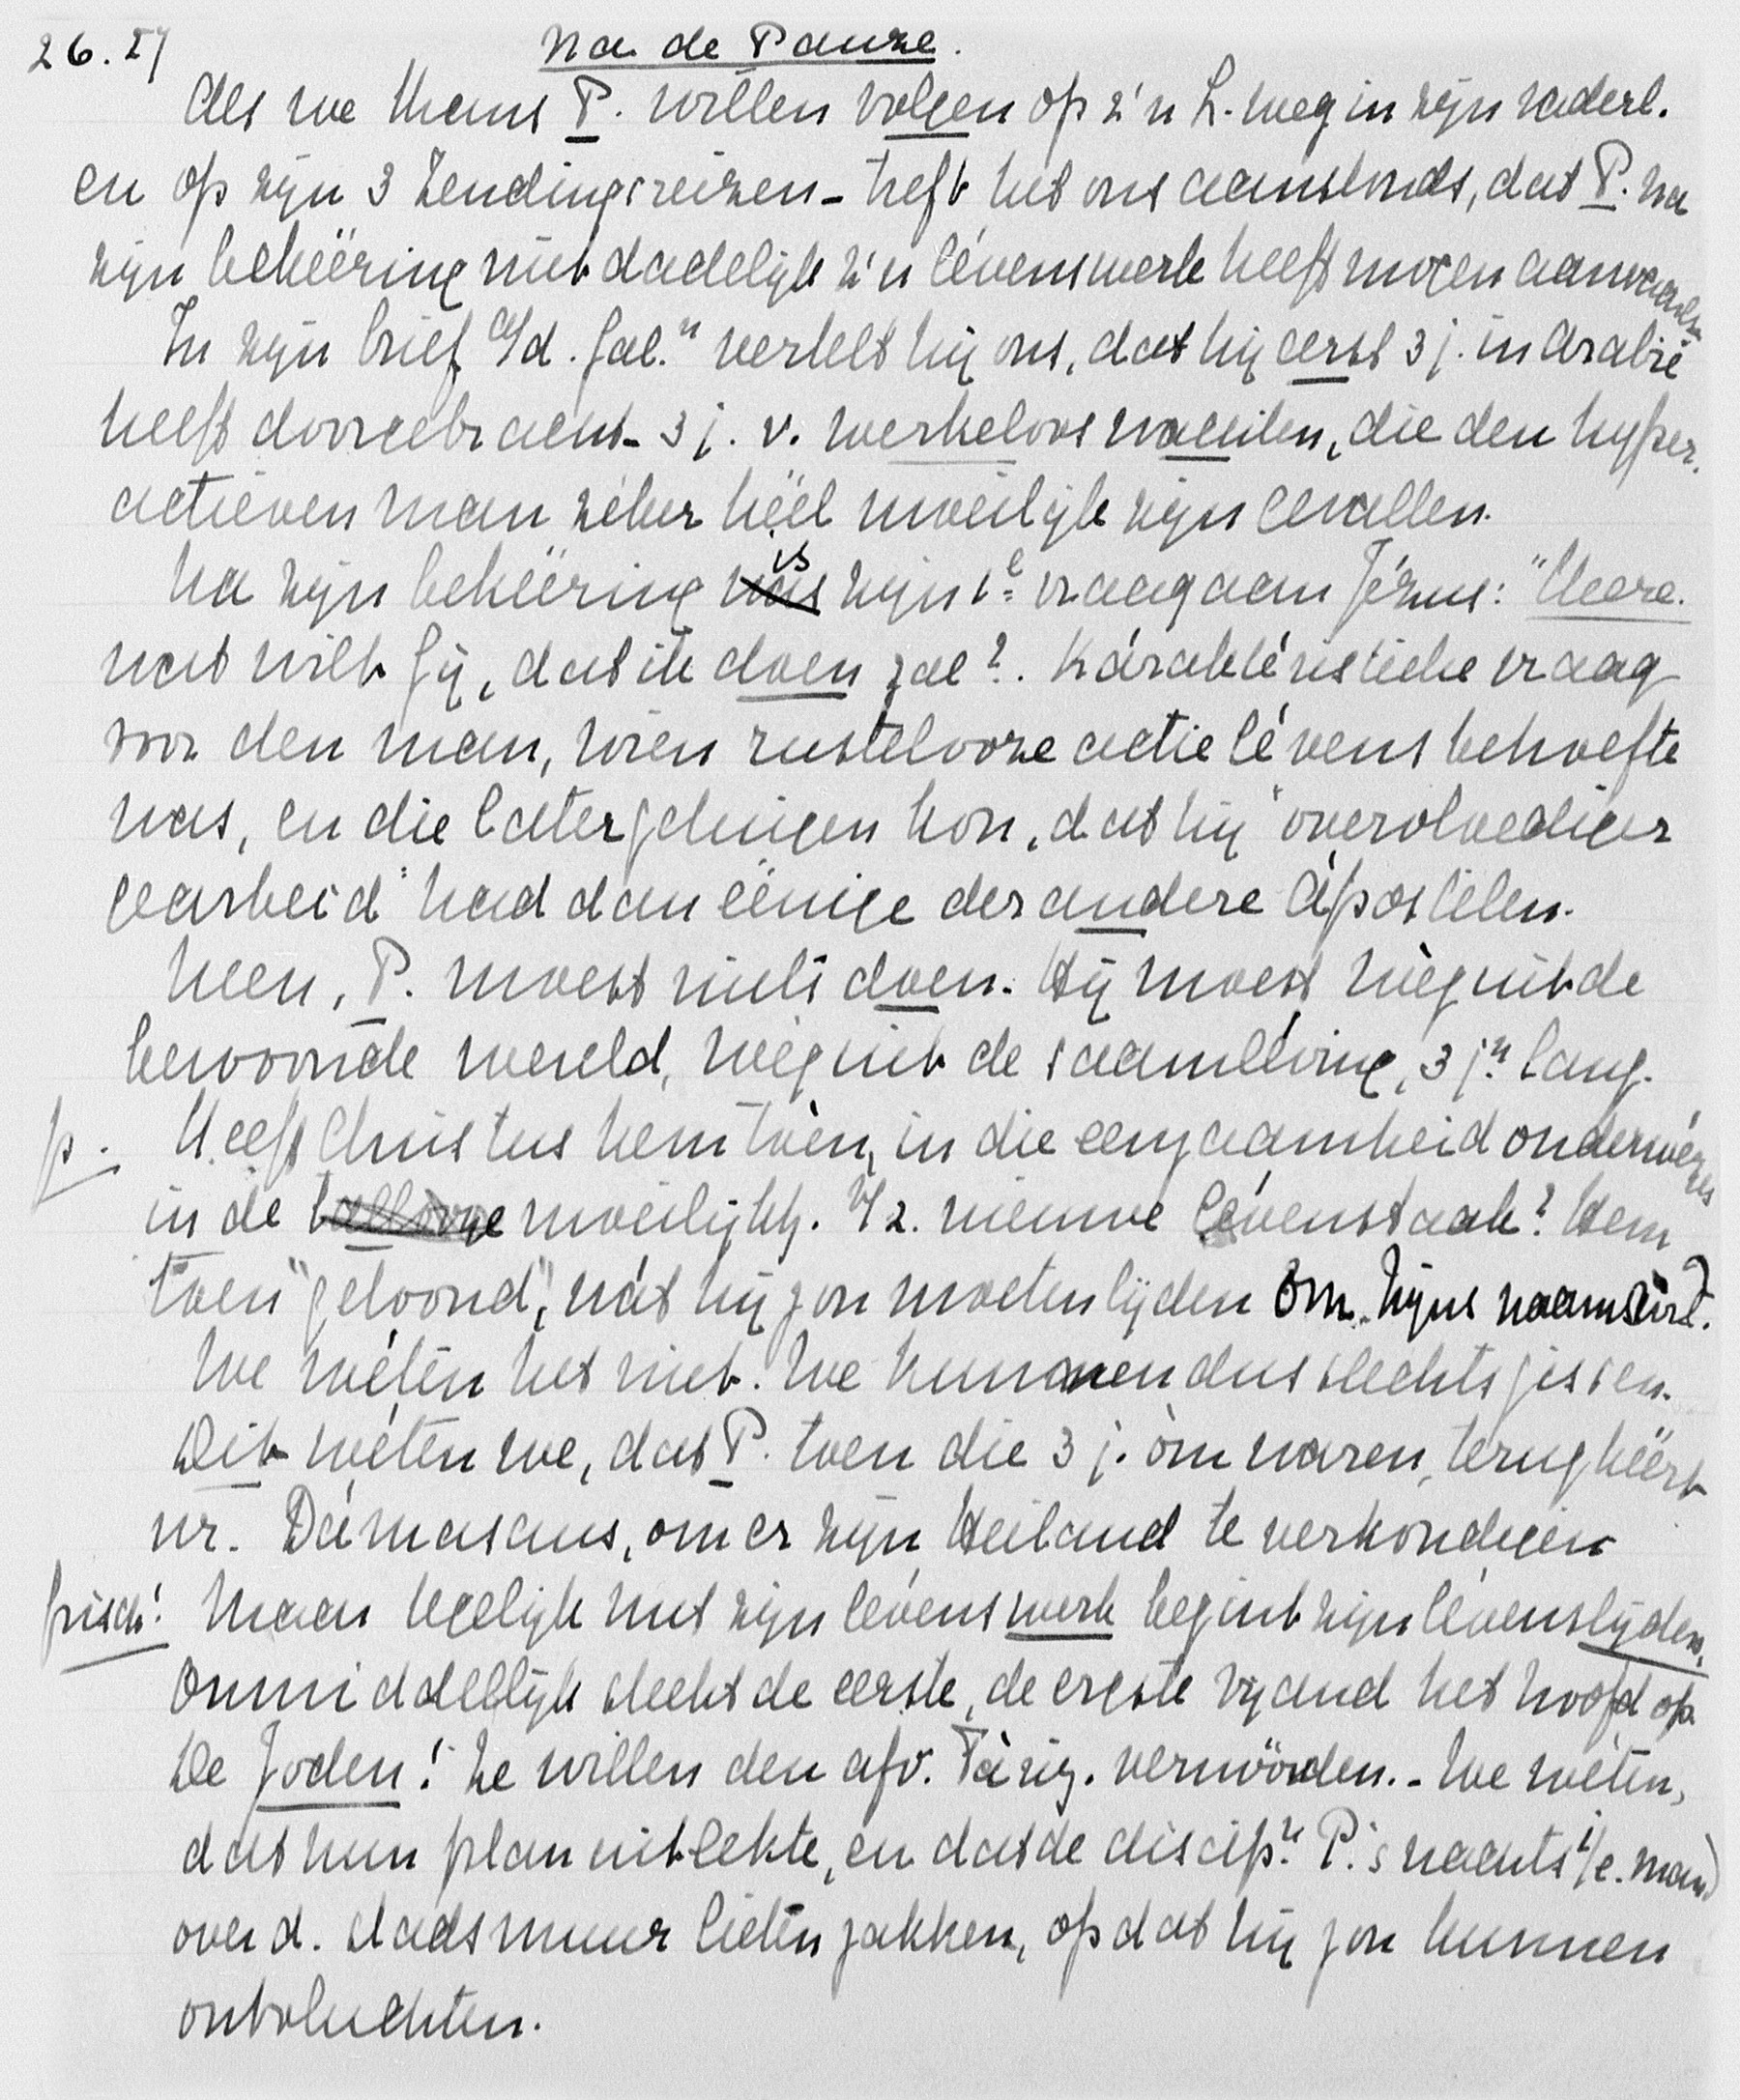 26.27 Na de Pauze.
Als we thans P. willen volgen op z'n L.weg in zijn vaderl.
en op zijn 3 Zendingsreizen - treft het ons aanstonds, dat P. na
zijn bekeëring niet dadelijk z'n lévenswerk heeft mogen aanvaarden
In zijn brief a/d. Gal.n vertelt hij ons, dat hij eerst 3 j. in Arabië
heeft doorgebracht - 3 j. v. werkeloos wachten, die den hyper.
actieven man zéker héél moeilijk zijn gevallen.
Na zijn bekeëring is zijn 1e vraag aan Jézus: "Heere.
wat wilt Gij, dat ik doen zal?. Karakteristieke vraag
voor den man, wien rustelooze actie lévensbehoefte
was, en die later getuigen kon, dat hij "overvloediger
gearbeid" had dan eenige der andere Apostelen.
Neen, P. moest niets doen. Hij moest wèg uit de
bewoonde wereld, wèg uit de saamléving, 3 j.n lang.
p. Heeft Christus hem tòen, in die eenzaamheid onderwézen
in de moeilijkh. v/z. nieuwe lévenstaak? Hem
toen "getoond", wàt hij zou moeten lijden om Zijns naams wil?
We wéten het niet. We kunnen dus slechts gissen.
Dit wéten we, dat P. toen die 3 j. òm waren, terugkëert
nr. Dámascus, om er zijn Heiland te verkondigen
frisch! Maar tegelijk met zijn lévenswerk begint zijn lévenslijden.
Onmiddellijk steekt de eerste, de ergste vijand het hoofd op.
De Joden! Ze willen den afv. Fariz. vermöorden. - We wéten,
dat hun plan uitlekte, en dat de discip.n P. 's nachts i/e. mand
over d. stadsmuur lieten zakken, opdat hij zou kunnen
ontvluchten.